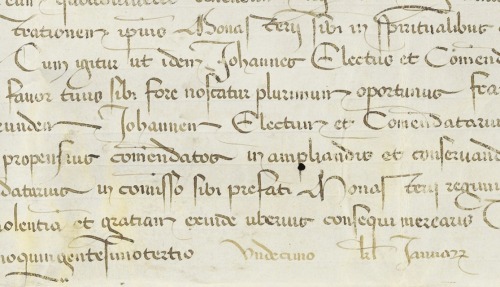 trationem ipius Monasterii sibi in spiritualibus
Cum igitur ut idem Johannes Electus et Comend
favor tuus sibi fore noscatur plurimum oportunus
eunden Johannem Electum et Comendatariu
propensius comendatos in ampliandis et conservand
datarius in comisso sibi prefati Monasterii regimi
volentia et gratiam exinde uberius consequi merearis
moquingentesimotertio Undecimo kl Januarii